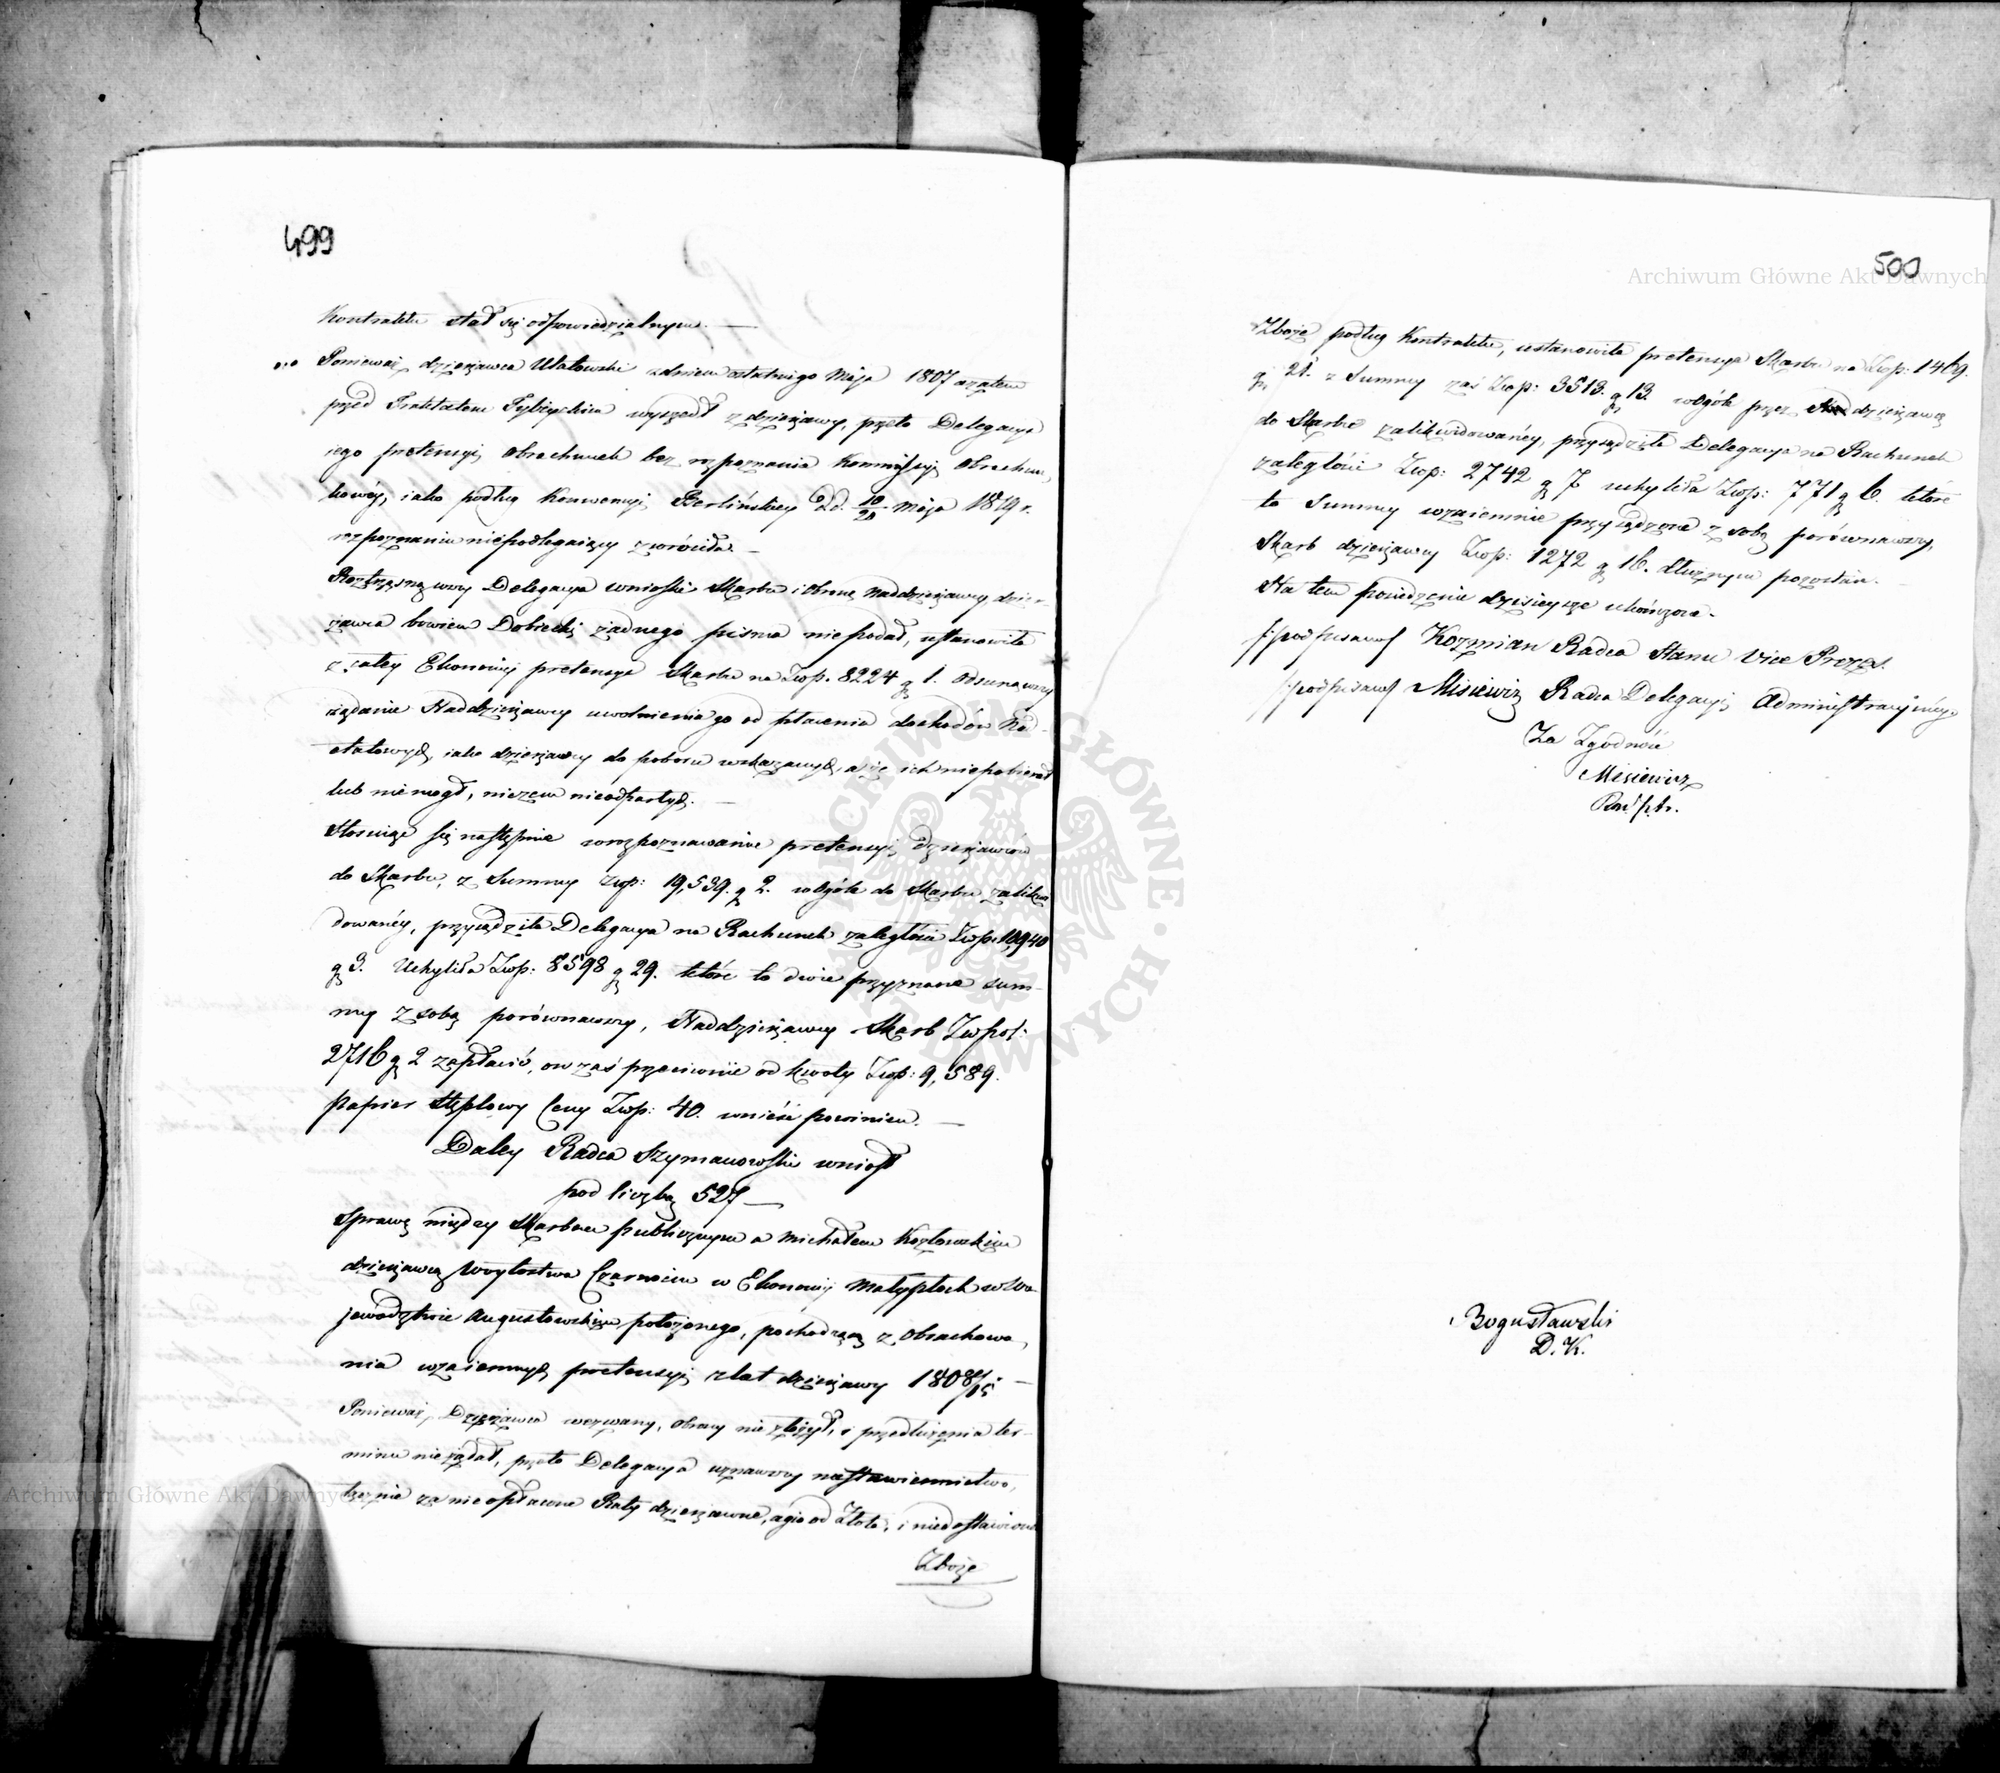 499
Kontraktu stał się odpowiedzialnym. —
Ponieważ dzierżawca Utatowski z dniem ostatniego Maja 1807 a zatem
przed Traktatem Tylżyckim wyszedł z dzierżawy, przeto Delegacya
iego pretensyi, obrachunek bez rozpoznania Kommissyi Obrachun-
kowéy, iako podług Konwencyi Berlińskiey d.d. 10/20 Maja 1819 r.
rozpoznaniu niepodlegaiący zwróciła. —
Roztrząsnąwszy Delegacya wnioski Skarbu i obronę Naddzierżawcy, dzier-
żawca bowiem Dobiecki żadnego pisma nie podał, ustanowiła
z całey Ekonomij pretensye Skarbu na Złtp. 8224 g 1. Odsunąwszy
żądanie Naddzierżawcy uwolnienia go od płacenia dochodów Nad-
etatowych, iako dzierżawcy do poboru wskazanych, a że ich nie pobierał
lub nie mogł, niczem nieodpartych. —
Stosuiąc się następnie w rozpoznawanie pretensyi dzierżawców
do Skarbu, z Summy złtp: 19,539. g 2. wogóle do Skarbu zalikwi
dowanéy, przysądziła Delegacya na Rachunek zaległości Złtp: 10,940
g 3. Uchyliła Złtp: 8598 g 29. które to dwie przyznane sum-
my z sobą porównawszy, Naddzierżawcy Skarb Złpol:
2716 g 2 zapłacić, on zaś przeciwnie od kwoty Złtp: 9,589.
papier stęplowy Ceny Złtp: 40. wnieść powinien. —
Daley Radca Szymanowski wniosł
pod liczbą 527 —
Sprawę między Skarbem publicznym a Michałem Kozłowskim
dzierżawcą Woytostwa Czarnocin w Ekonomij Małypłock w Wo-
jewodztwie Augustowskim położonego, pochodzącą z obrachowa-
nia wzaiemnych pretensyi z lat dzierżawy 1808/15 —
Ponieważ Dzierżawca wezwany, obrony nie złożył, i przedłużenia ter-
minu nie żądał, przeto Delegacya uznawszy niestawiennictwo,
łącznie za nieopłacone Raty dzierżawne, agio od Złota, i niedostawione
Zboże
500
Zboże podług Kontraktu, ustanowiła pretensye Skarbu na Złtp: 1469.
g 21. z Summy zaś Złtp: 3513. g 13. wogóle przez dzierżawcę
do Skarbu zalikwidowanéy, przysądziła Delegacya na Rachunek
zaległości Złtp: 2742 g 7 uchyliła Złtp: 771 g 6. które
to Summy wzaiemnie przysądzone z sobą porównawszy,
Skarb dzierżawcy Złtp: 1272 g 16. dłużnym pozostaie. —
Na tem posiedzenie dzisieysze ukończone.
/:podpisano:/ Kozmian Radca Stanu Vice Prezes.
/:podpisano:/ Misiewicz Radca Delegacyi Administracyinéy.
Za Zgodność
Misiewicz
Bogusławski
D. K.
Archiwum Główne Akt Dawnych
Archiwum Główne Akt Dawnych
ARCHIWUM GŁÓWNE AKT DAWNYCH